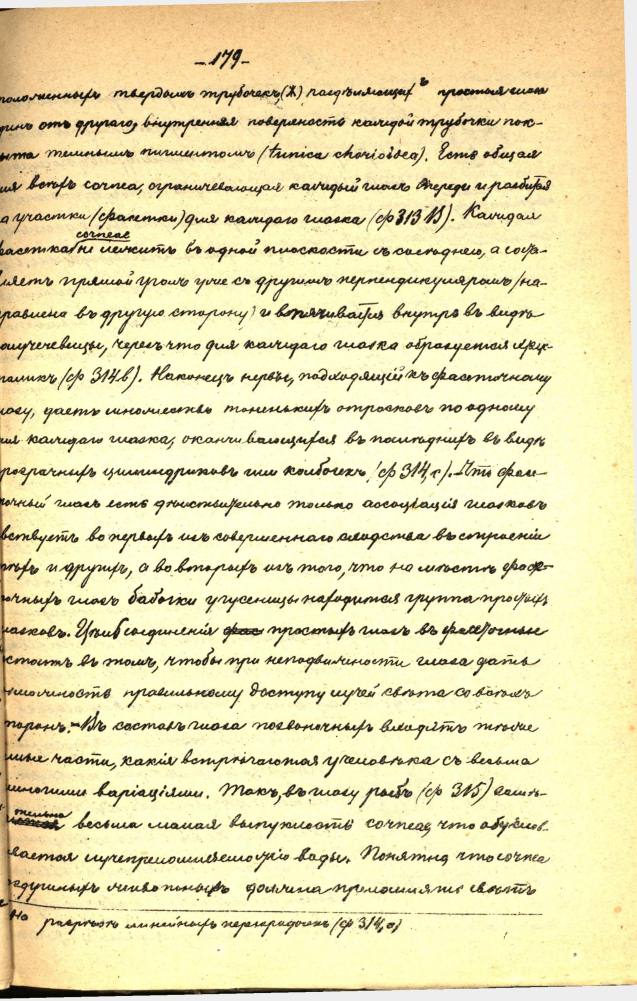 - 179 -
положенныхъ твердыхъ трубочекъ, (А) раздѣляющихъ простыя глаза
одинъ отъ другого, внутренняя поверхность каждой трубочки пок-
рыта темнымъ пигментомъ (tunica chorioidea). Есть общая
ограничевающая каждый глазъ спереди и разбитая
на участки (фасетки) для каждаго глазка (ф 313 В). Каждая
фасетка не лежитъ въ одной плоскости съ сосѣднею, а состав-
ляетъ прямой уголъ уже съ другимъ перпендикуляромъ (на-
правлена въ другую сторону) и впячивается внутрь въ видѣ
получечевицы, черезъ что для каждаго глазка образуется хрус-
таликъ (ф 314 в). Наконецъ нервъ, подходящій къ фасеточному
глазу, даетъ множество тоненькихъ отростковъ по одному
для каждаго глазка, оканчивающихся въ послѣднихъ въ видѣ
прозрачныхъ цилиндриковъ или колбочекъ (ф 314, с). Что фасе-
точный глазъ есть дѣйствительно только ассоціація глазковъ
явствуетъ во первыхъ изъ совершеннаго сходства въ строеніи
тѣхъ и другихъ, а во вторыхъ изъ того, что на мѣстѣ фасе-
точныхъ глазъ бабочки у гусеницы находится группа простыхъ
глазковъ. Цѣль соединенія простыхъ глазъ въ фасеточные
состоитъ въ томъ, чтобы при неподвижности глаза дать
возможность правильному доступу лучей свѣта со всѣхъ
сторонъ. - Въ составъ глаза позвоночныхъ входятъ тѣже
самые части, какія встрѣчаются у человѣка съ весьма
многими варіаціями. Такъ, въ глазу рыбъ (ф 315)
весьма малая выпуклость сочнеа, что обуслов-
ливается лучепреломляемостію воды. Понятно что сочнеа
воздушныхъ животныхъ должна преломлять свѣтъ
линейныхъ перегородокъ (ф 314, а)